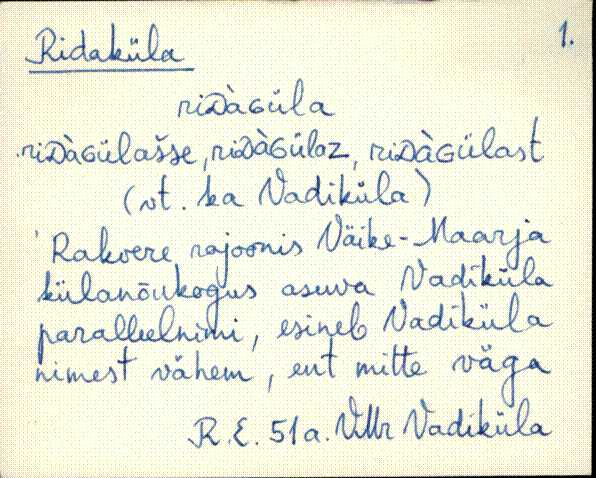 Ridaküla 1.
riᴅàɢüla
riᴅàɢülašse, riᴅàɢülaz, riᴅàɢülast
(vt. ka Vadiküla)
Rakvere rajoonis Väike-Maarja
külanõukogus asuva Vadiküla
paralleelnimi, esineb Vadiküla
nimest vähem, ent mitte väga
R.E. 51a. VMr Vadiküla